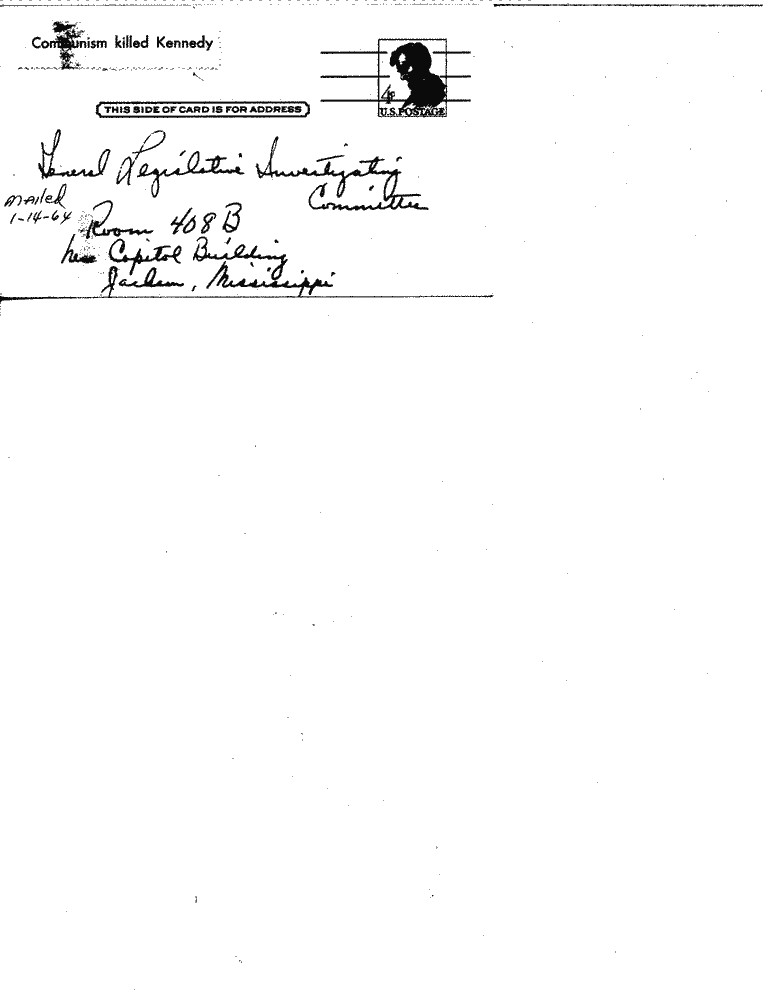 Communism killed Kennedy
4¢
U.S. POSTAGE
THIS SIDE OF CARD IS FOR ADDRESS
General Legislative Investigating
Committee
mailed
1-14-64
Room 408 B
New Capitol Building
Jackson, Mississippi